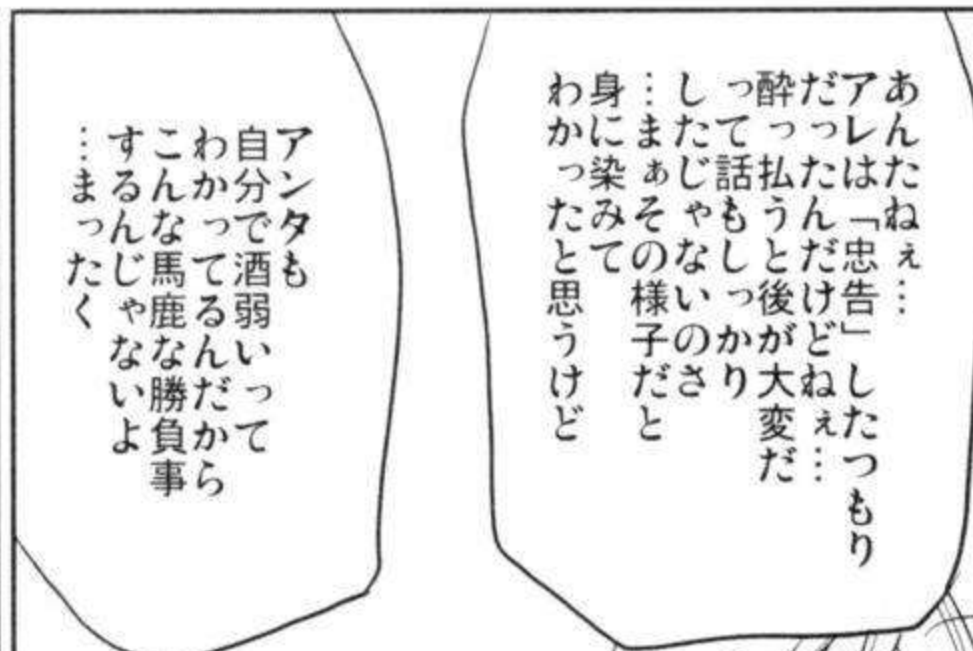 あんたねぇ…
アレは「忠告」したつもり
だったんだけどねぇ…
酔っ払うと後が大変だ
って話もしっかり
したじゃないのさ
…まぁその様子だと
身に染みて
わかったと思うけど
アンタも
自分で酒弱いって
わかってるんだから
こんな馬鹿な勝負事
するんじゃないよ
…まったく